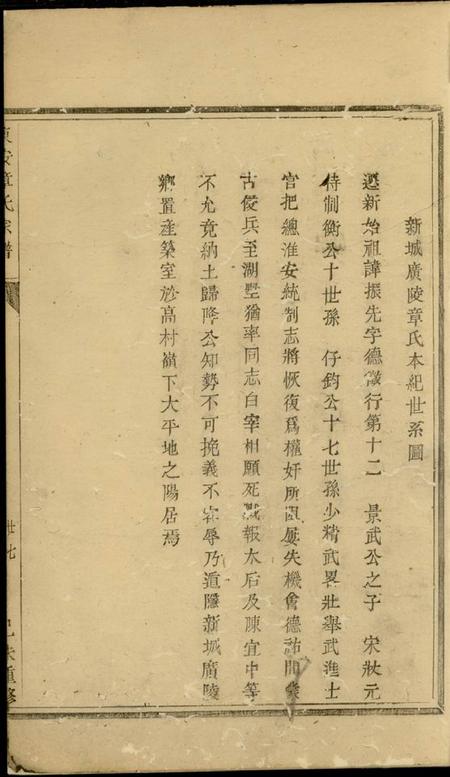 新城廣陵章氏本紀世系圖
遷新始祖諱振先字德徵行第十二 景武公之子 宋狀元
待制衡公十世孫 仔鈞公十七世孫少精武畧壯舉武進士
官把總淮安統制志將恢復爲權奸所阻屢失機會德祐間蒙
古侵兵至湖墅猶率同志白宰相願死戰報太后及陳宜中等
不允竟納土歸降公知勢不可挽義不容辱乃遁隱新城廣陵
鄉置產築室於高村嶺下大平地之陽居焉
章氏家譜
廿七
重修